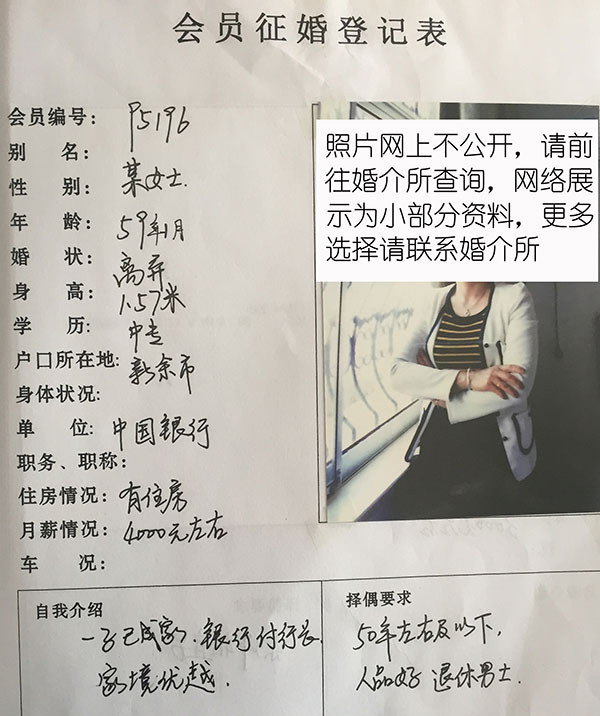 会员征婚登记表
会员编号: P5196
别 名: 某女士.
性 别:
年 龄: 59年1月
婚 状: 离弃
身 高: 1.57米
学 历: 中专
户口所在地: 新余市
身体状况:
单 位: 中国银行
职务、职称:
住房情况: 有住房
月薪情况: 4000元左右
车 况:
照片网上不公开，请前
往婚介所查询，网络展
示为小部分资料，更多
选择请联系婚介所
自我介绍
一子已成家、银行付行长
家境优越.
择偶要求
50年左右及以下,
人品好 退休男士.